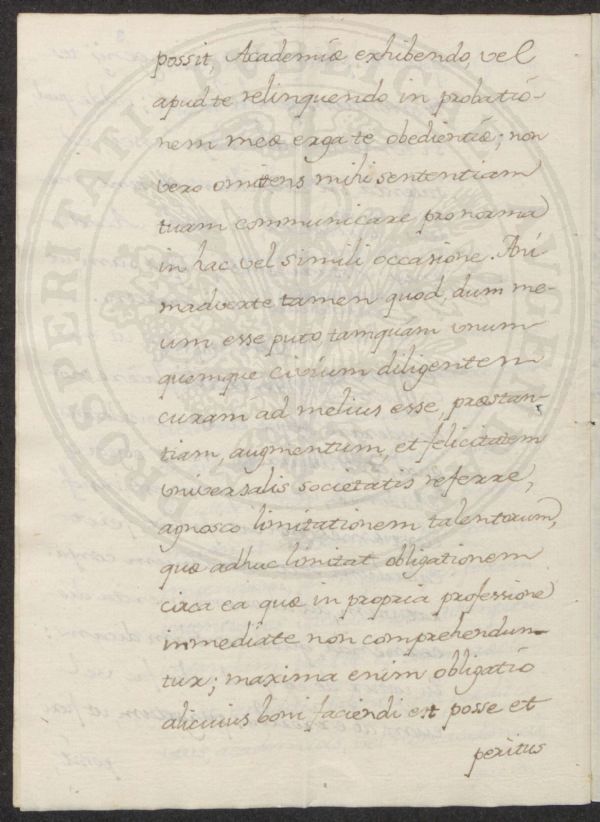 possit Academiæ exhibendo, vel
apud te relinquendo in probatio-
nem meæ erga te obedientiæ; non
vero omittens mihi sententiam
tuam communicare pro norma
in hac vel simili occasione. Ani
madverte tamen quod, dum me-
um esse puto, tamquam unum-
quemque civium diligentem
curam ad melius esse, præstan-
tiam, augmentum, et felicitatem
universalis societatis referre,
agnosco limitationem talentorum,
quæ adhuc limitat obligationem
circa ea quæ in propria professione
inmediate non comprehendun-
tur; maxima enim obligatio
alicuius boni faciendi est posse et
peritus
PROSPERITATI PUBLICÆ AUGENDÆ